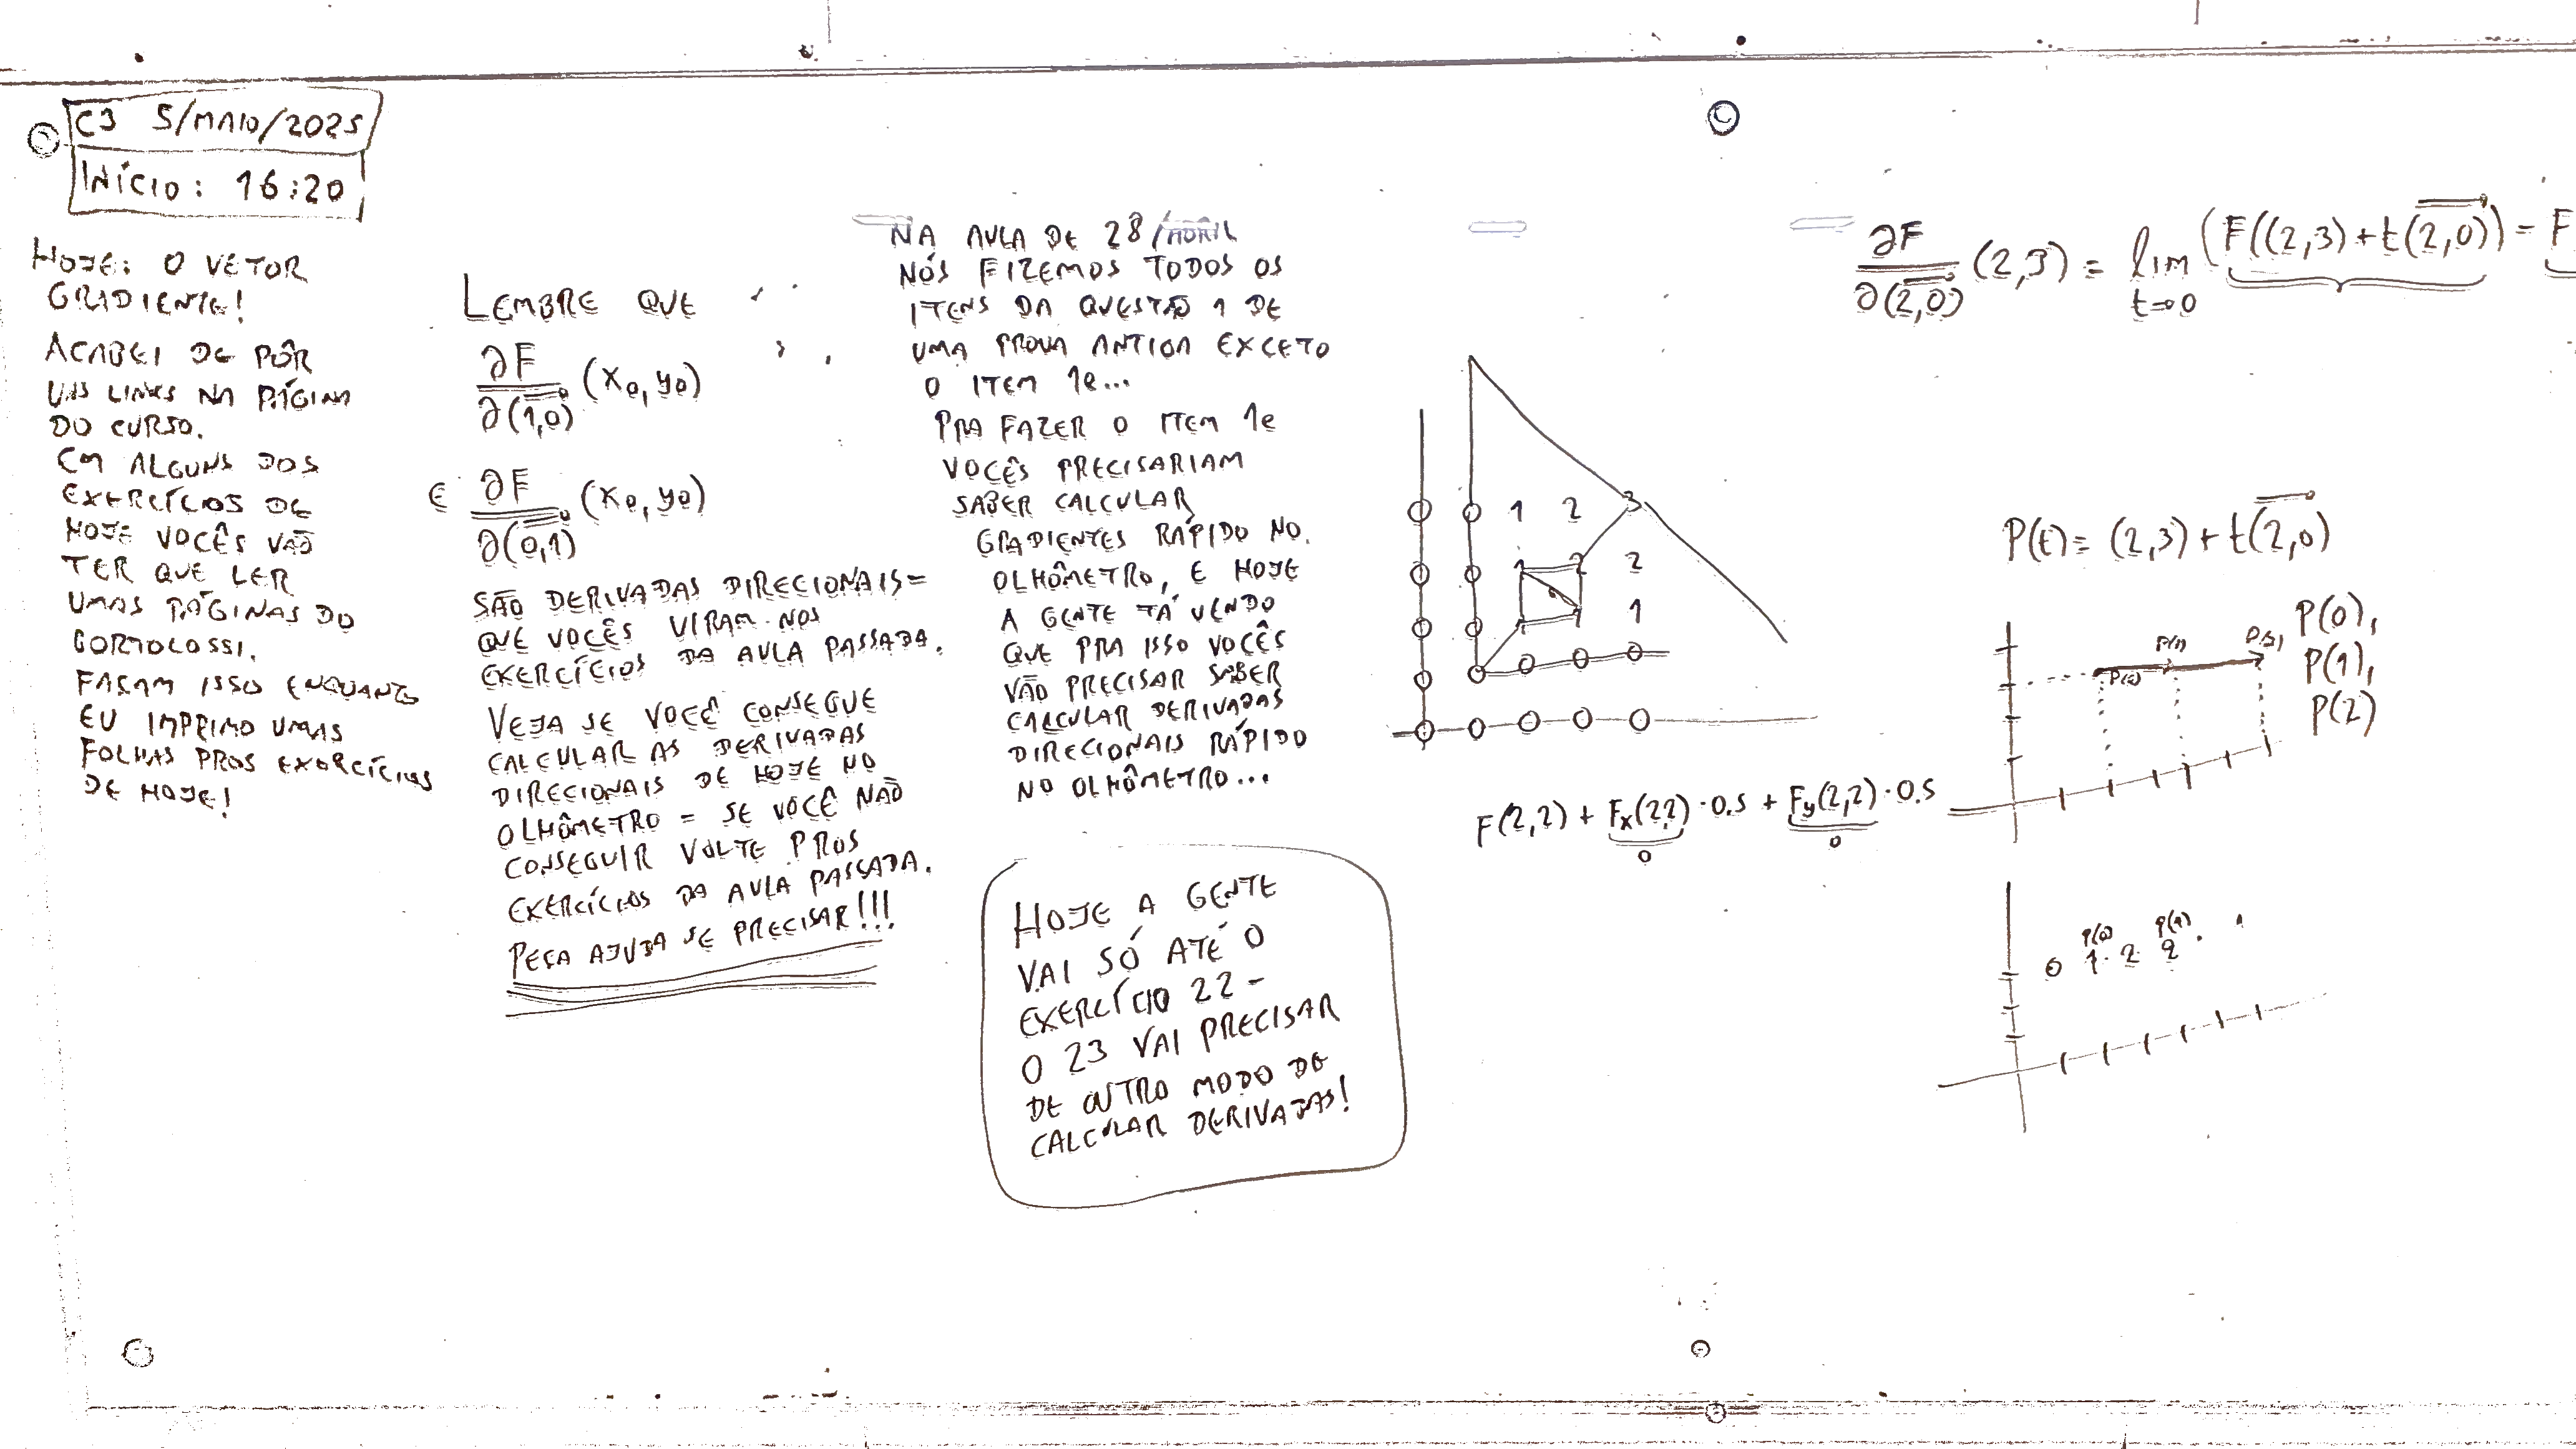 C3 5/MAIO/2025
INÍCIO: 16:20
HOJE: O VETOR
GRADIENTE!
ACABEI DE PÔR
UNS LINKS NA PÁGINA
DO CURSO.
EM ALGUNS DOS
EXERCÍCIOS DE
HOJE VOCÊS VÃO
TER QUE LER
UMAS PÁGINAS DO
BORTOLOSSI.
FAÇAM ISSO ENQUANTO
EU IMPRIMO UMAS
FOLHAS PROS EXERCÍCIOS
DE HOJE!
LEMBRE QUE
∂F/∂(1,0) (x₀,y₀)
E ∂F/∂(0,1) (x₀,y₀)
SÃO DERIVADAS DIRECIONAIS =
QUE VOCÊS VIRAM NOS
EXERCÍCIOS DA AULA PASSADA.
VEJA SE VOCÊ CONSEGUE
CALCULAR AS DERIVADAS
DIRECIONAIS DE HOJE NO
OLHÔMETRO = SE VOCÊ NÃO
CONSEGUIR VOLTE PROS
EXERCÍCIOS DA AULA PASSADA.
PEÇA AJUDA SE PRECISAR!!!
NA AULA DE 28/ABRIL
NÓS FIZEMOS TODOS OS
ITENS DA QUESTÃO 1 DE
UMA PROVA ANTIGA EXCETO
O ITEM 1e...
PRA FAZER O ITEM 1e
VOCÊS PRECISARIAM
SABER CALCULAR
GRADIENTES RÁPIDO NO
OLHÔMETRO, E HOJE
A GENTE TÁ VENDO
QUE PRA ISSO VOCÊS
VÃO PRECISAR SABER
CALCULAR DERIVADAS
DIRECIONAIS RÁPIDO
NO OLHÔMETRO...
HOJE A GENTE
VAI SÓ ATÉ O
EXERCÍCIO 22 -
O 23 VAI PRECISAR
DE OUTRO MODO DE
CALCULAR DERIVADAS!
0 0 1 2 3
0 0 1 2 2
0 0 1 1 1
0 0 0 0 0
0 0 0 0 0
F(2,2) + Fx(2,2) · 0.5 + Fy(2,2) · 0.5
0 0
∂F/∂(2,0) (2,3) = lim t→0 (F((2,3) + t(2,0)) - F
P(t) = (2,3) + t(2,0)
P(0),
P(1),
P(2)
P(0) P(1) P(2)
P(0) P(1)
0 1 2 2 1